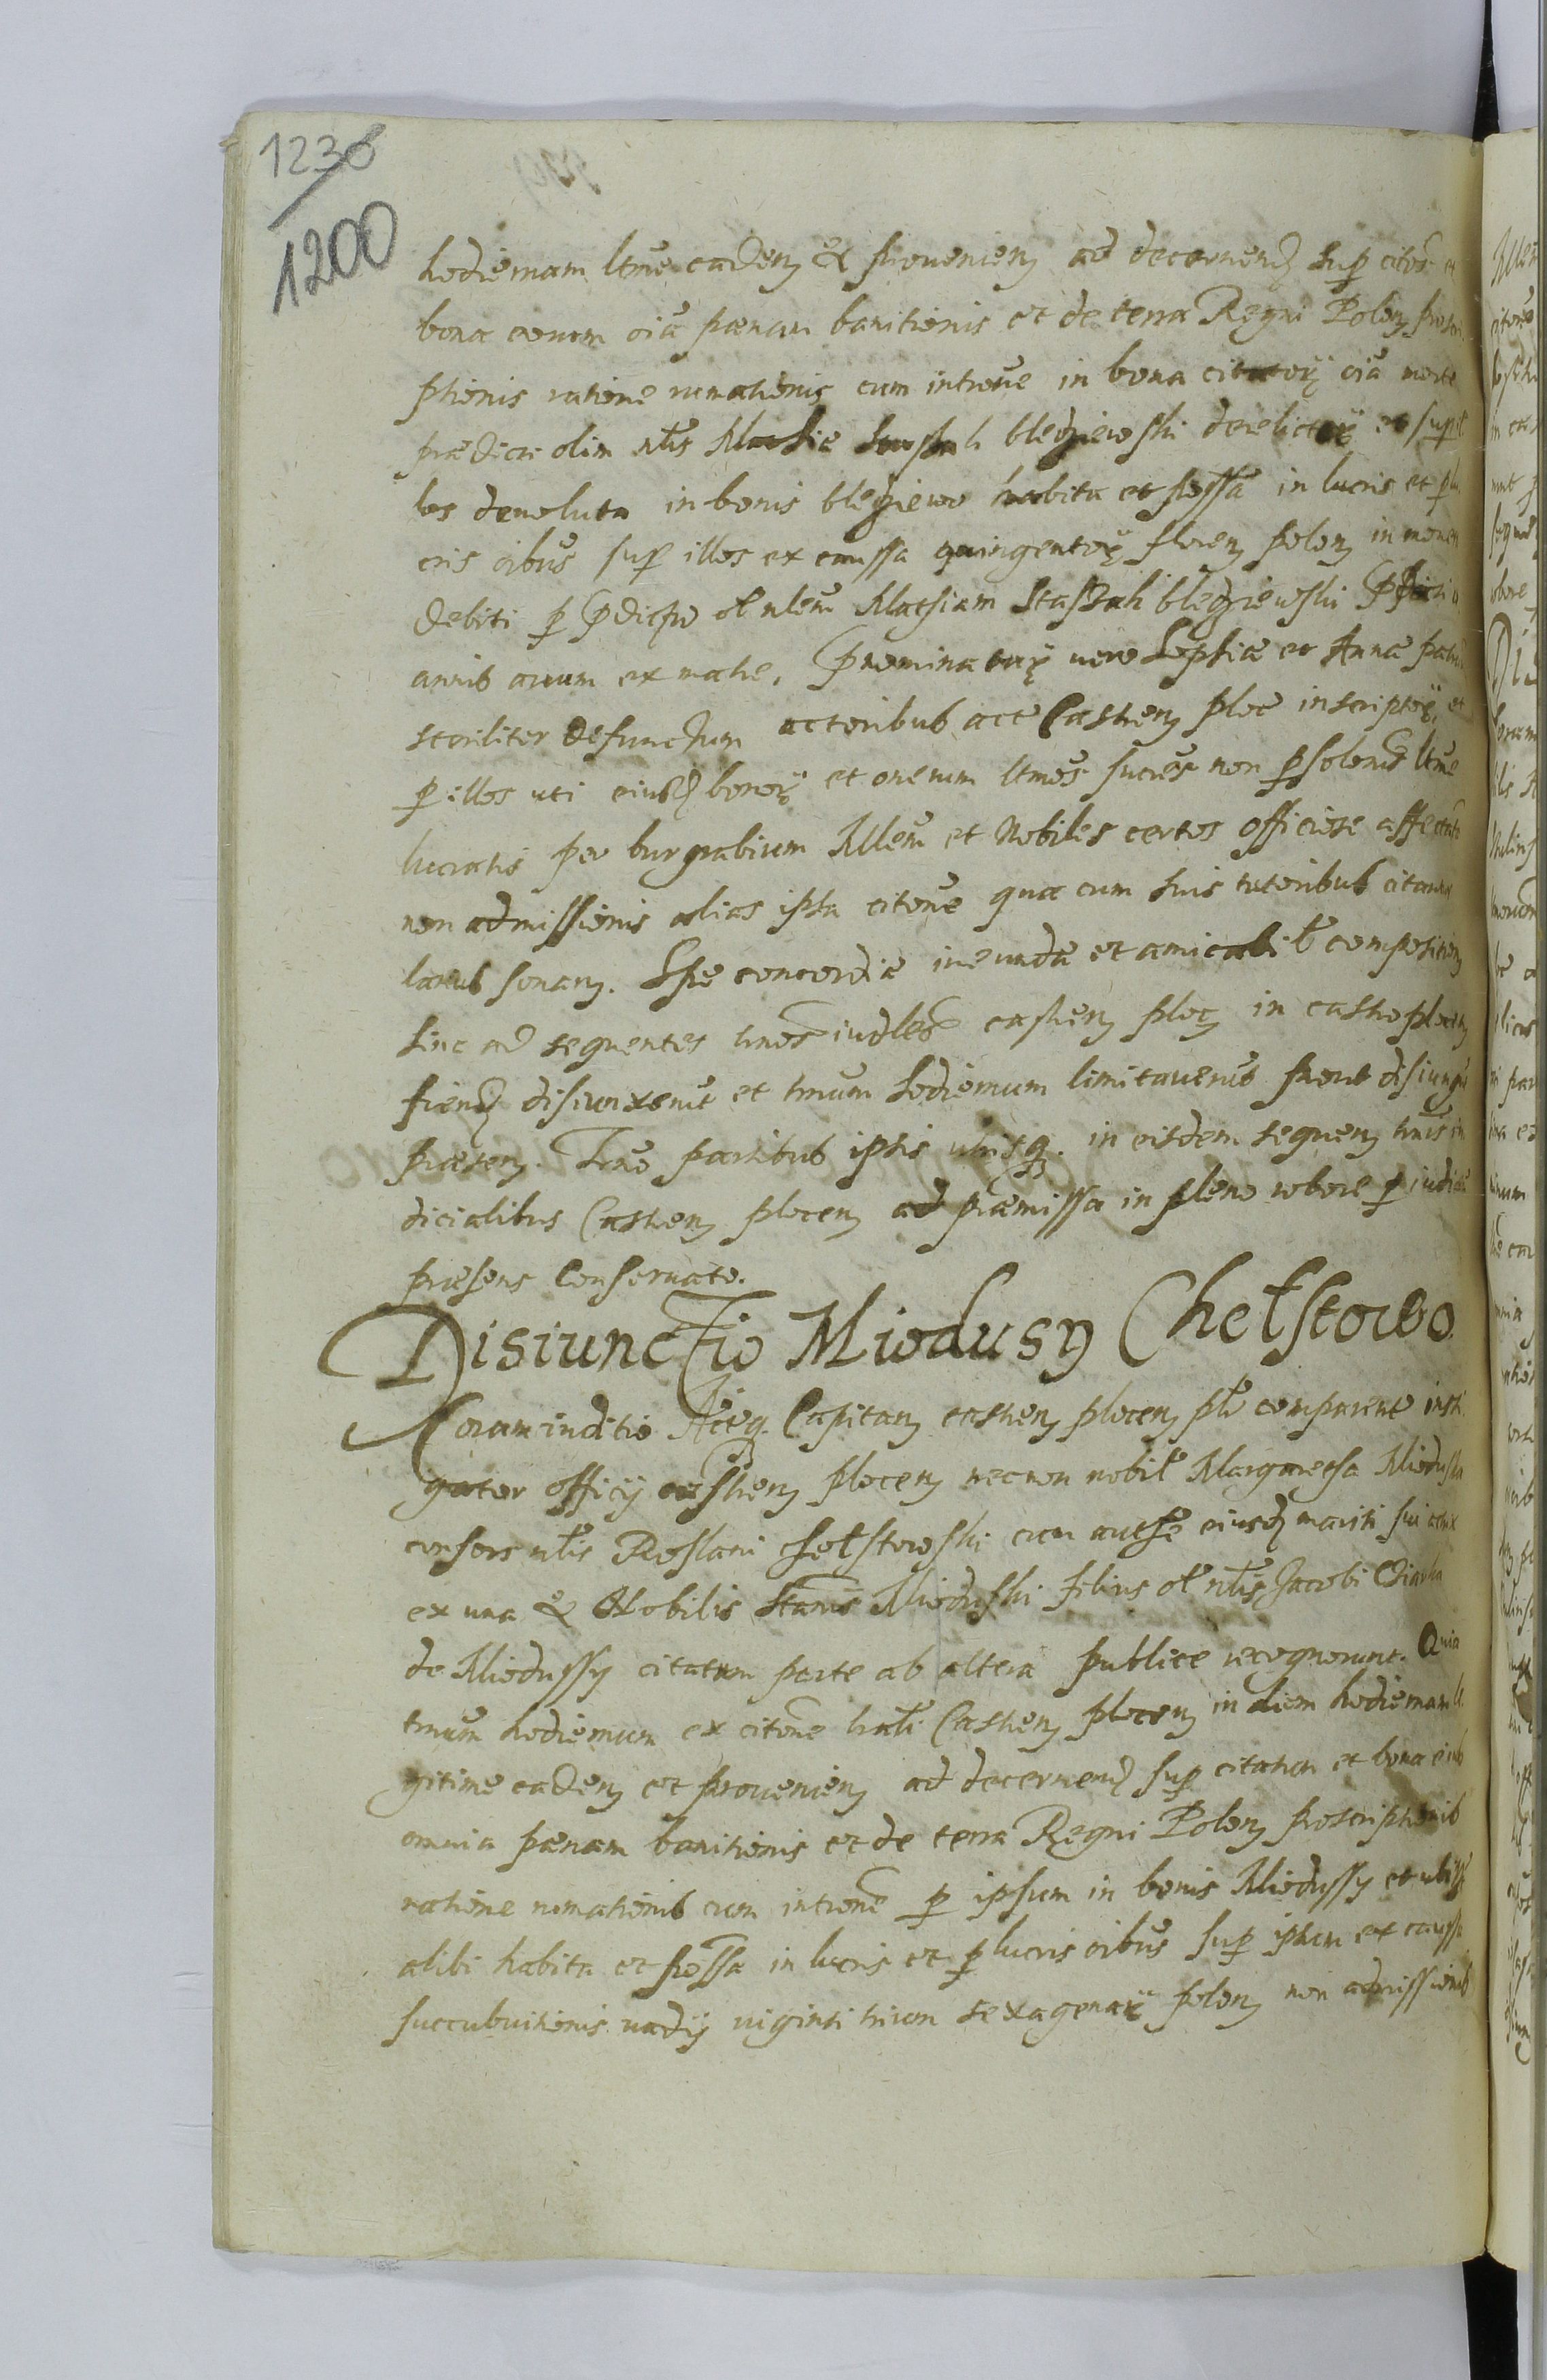 1236
1200
hodiernam ltime caden et provenien ad decernend sup citos et
bona eorum oia pœnam banitionis et de terra Regni Polon proscri
ptionis ratione rumationis cum introne in bona citatorum oia morte
prædicti olim nlis Mathiæ Stassak bledziewski derelictorum et sup il
los devoluta in bonis bledziewo habita et possa in lucris et plu
cris oibus sup illos ex caussa quingentorum floren polon in mone
debiti p pdictum ol nlem Mathiam Staszak bledziewski
annis avum ex matre, prominatarum vero Sophiæ et Annæ
steriliter defunctum actoribus act Castren ploc inscriptorum, et
p illos uti eiusd bonorum et onerum ltmos sucres non psolonis ltme
lucratis per burgrabium Mlem et Nobiles certos officiose affectate
non admissionis alias ipsa citone quæ cum suis tutoribus citanda
latius sonan. Spe concordiæ ineundæ et amicabilr compositionis
hinc ad sequentes tmos iudles castren ploc in castro plocen
fiend disiunxerut et tmum hodiernum limitaverut prout disiungu
præsen. Tmo partibus ipsis utrisq. in eisdem sequen tmis iu
dicialibus Castren plocen ad præmissa in pleno robore p iudiciu
præsens Conservato.
Disiunctio Miodusy Chełstowo
Coram iuditio Actq. Capitan castren plocen plr comparente insti
gator officÿ castren plocen necnon nobil Margaretha Mioduska
consors nlis Roslani Chełstowski cum authe eiusd mariti sui actrix
ex una et Nobilis Stanis Mioduski filius ol nlis Jacobi
de Miodussy citatum parte ab altera publice recognorunt. Quia
tmum hodiernum ex citone trali Castren plocen in diem hodiernam le
gitime caden et provenien ad decernend sup citatum et bona eius
omnia pœnam banitionis et de terra Regni Polon proscriptionis
ratione rumationis cum introne p ipsum in bonis Miodussy et ubivis
alibi habita et possa in lucris et p lucris oibus sup ipsum ex caussa
succubuitionis vadÿ viginti trium sexagenarum polon non admissionis